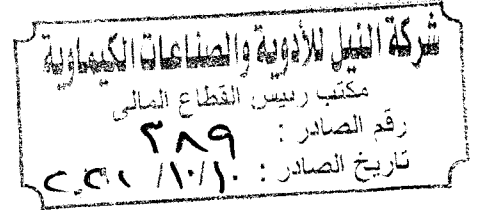 شركة النيل للأدوية والصناعات الكيماوية
مكتب رئيس القطاع المالى
رقم الصادر : ٣٨٩
تاريخ الصادر : ١٠/١٠/